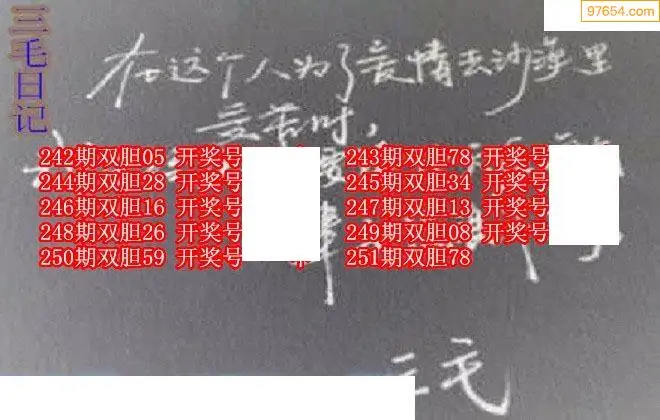 97654.com
三毛日记
在这个人为了爱情去沙漠里
受苦时，
242期双胆05 开奖号 243期双胆78 开奖号
244期双胆28 开奖号 245期双胆34 开奖号
246期双胆16 开奖号 247期双胆13 开奖号
248期双胆26 开奖号 249期双胆08 开奖号
250期双胆59 开奖号 251期双胆78
三毛